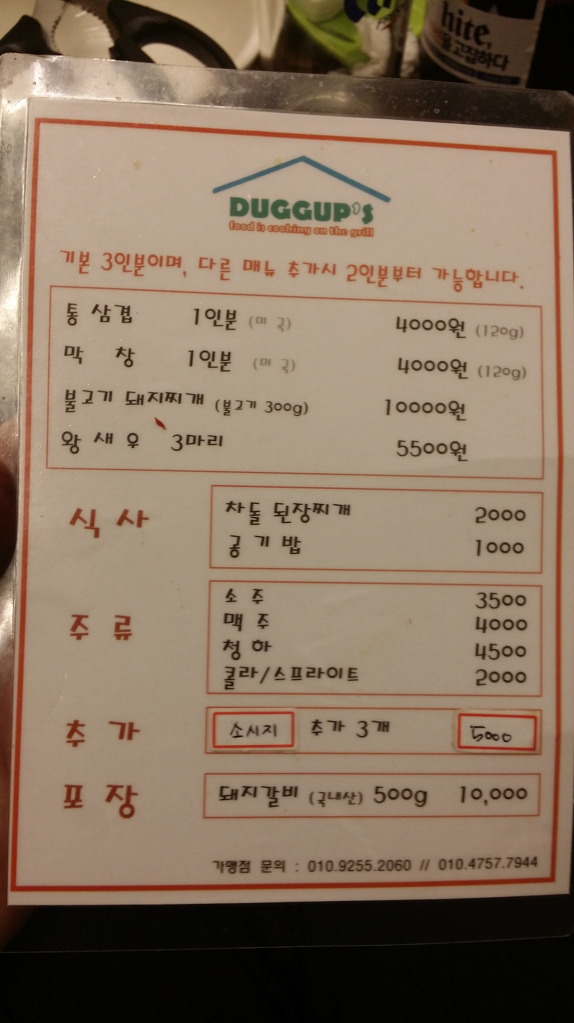 hite,
물고잡하다
DUGGUP'S
food is cooking on the grill
기본 3인분이며, 다른 메뉴 추가시 2인분부터 가능합니다.
통 삼겹 1인분 (미 국) 4000원 (120g)
막 창 1인분 (미 국) 4000원 (120g)
불고기 돼지찌개 (불고기 300g) 10000원
왕 새 우 3마리 5500원
식 사
차돌 된장찌개 2000
공 기 밥 1000
주 류
소 주 3500
맥 주 4000
청 하 4500
콜라/스프라이트 2000
추 가
소시지 추가 3개 5000
포 장
돼지갈비 (국내산) 500g 10,000
가맹점 문의 : 010.9255.2060 // 010.4757.7944